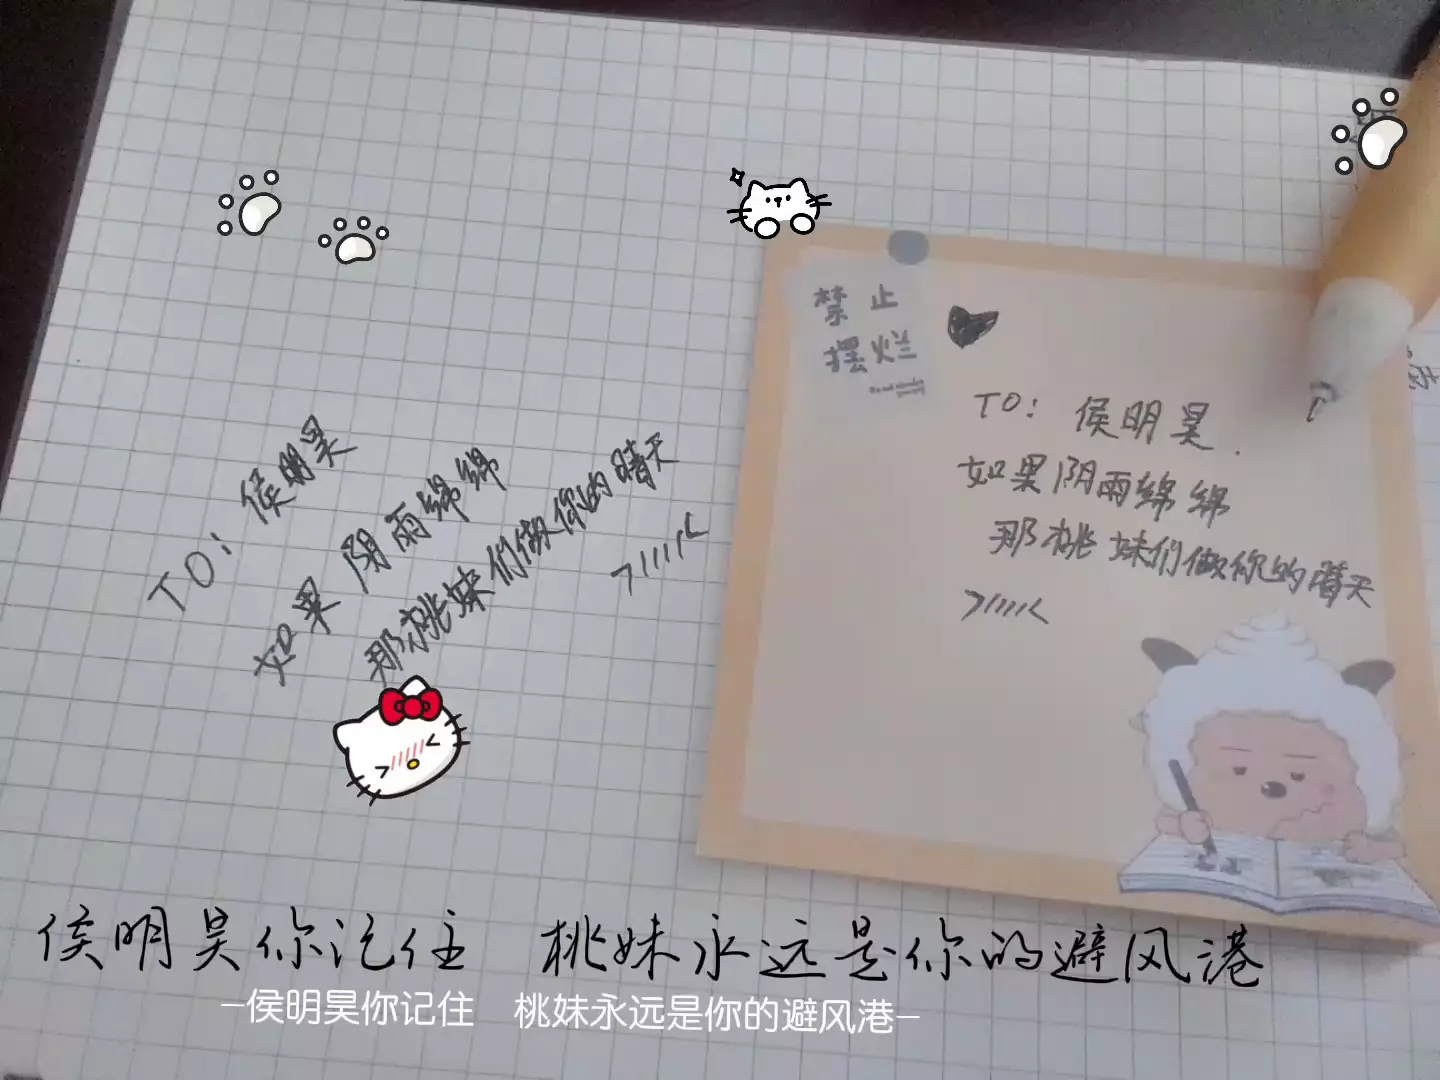 禁止
摆烂
TO: 侯明昊.
如果阴雨绵绵
那桃妹们做你的晴天
TO: 侯明昊
如果 阴雨绵绵
那桃妹们做你的晴天
侯明昊你记住 桃妹永远是你的避风港
—侯明昊你记住 桃妹永远是你的避风港—